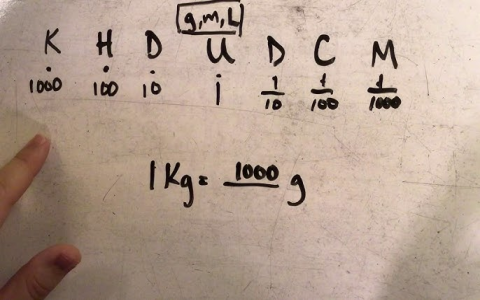 g, m, L
K H D U D C M
1000 100 10 1 1/10 1/100 1/1000
1 Kg = 1000 g